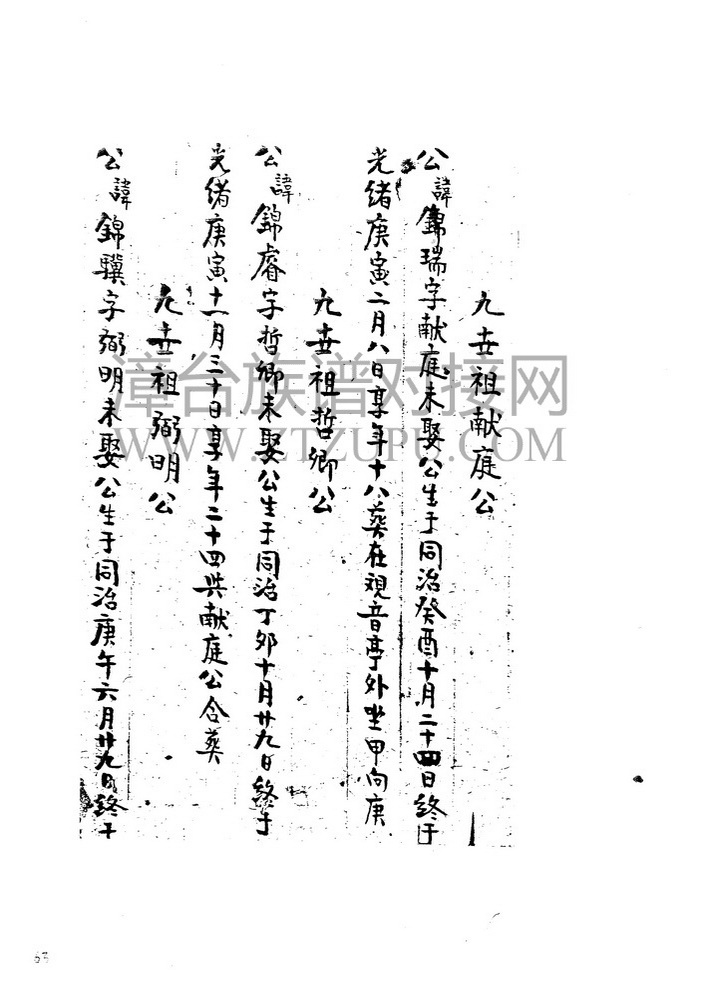 九世祖献庭公
公諱錦瑞字献庭未娶公生于同治癸酉十月二十四日終于
光緒庚寅二月八日享年十八葬在观音亭外坐甲向庚
九世祖哲卿公
公諱錦睿字哲卿未娶公生于同治丁卯十月廿九日終于
光緒庚寅十一月三十日享年二十四共献庭公合葬
九世祖弼明公
公諱錦驥字弼明未娶公生于同治庚午六月廿九日終于
漳台族谱对接网
WWW.ZTZUPU.COM
63